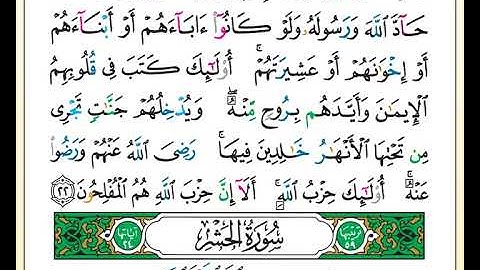 حَآدَّ ٱللَّهَ وَرَسُولَهُۥ وَلَوْ كَانُوٓا۟ ءَابَآءَهُمْ أَوْ أَبْنَآءَهُمْ
أَوْ إِخْوَٰنَهُمْ أَوْ عَشِيرَتَهُمْ ۚ أُو۟لَٰٓئِكَ كَتَبَ فِى قُلُوبِهِمُ
ٱلْإِيمَٰنَ وَأَيَّدَهُم بِرُوحٍ مِّنْهُ ۖ وَيُدْخِلُهُمْ جَنَّٰتٍ تَجْرِى
مِن تَحْتِهَا ٱلْأَنْهَٰرُ خَٰلِدِينَ فِيهَا ۚ رَضِىَ ٱللَّهُ عَنْهُمْ وَرَضُوا۟
عَنْهُ ۚ أُو۟لَٰٓئِكَ حِزْبُ ٱللَّهِ ۚ أَلَآ إِنَّ حِزْبَ ٱللَّهِ هُمُ ٱلْمُفْلِحُونَ ٢٢
ترتيبها ٥٩ سُورَةُ الحَشْرِ آياتها ٢٤